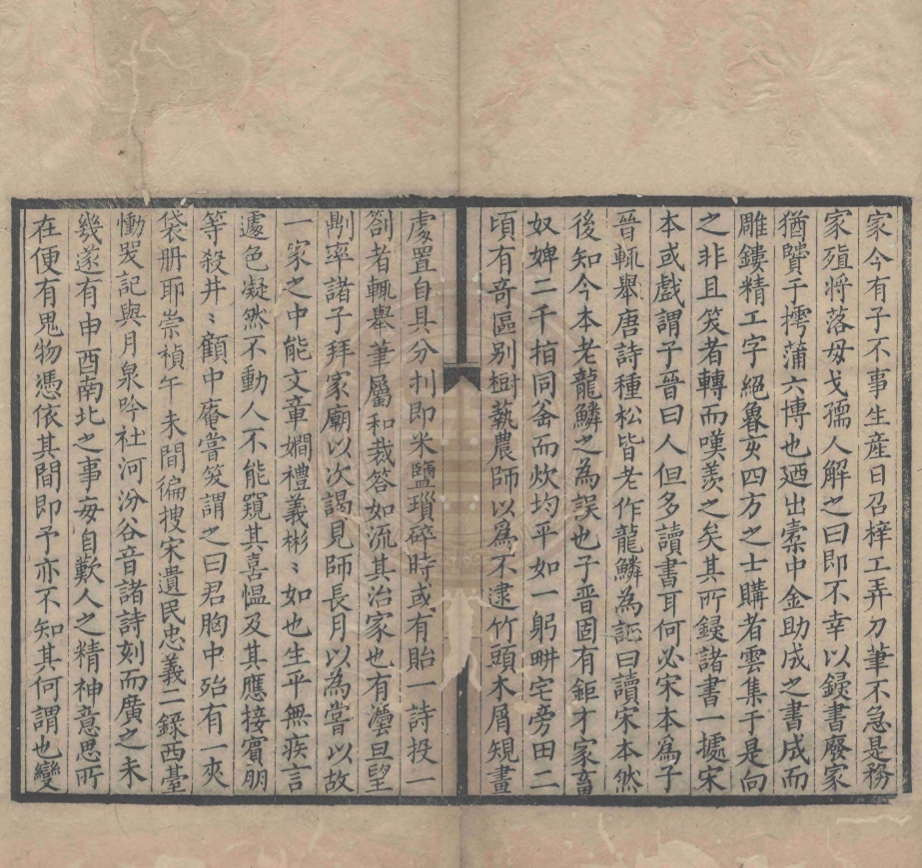 家今有子不事生產日召梓工弄刀筆不急是務
家殖將落母戈孺人解之曰即不幸以録書廢家
猶賢于摴蒲六博也迺出橐中金助成之書成而
雕鏤精工字絕魯亥四方之士購者雲集于是向
之非且笑者轉而嘆羨之矣其所録諸書一據宋
本或戲謂子晉曰人但多讀書耳何必宋本為子
晉輒舉唐詩種松皆老作龍鱗為証曰讀宋本然
後知今本老龍鱗之為誤也子晉固有鉅才家畜
奴婢二千指同釜而炊均平如一躬畊宅旁田二
頃有奇區别樹藝農師以為不逮竹頭木屑規畫
處置自具分寸即米鹽瑣碎時或有貽一詩投一
劄者輒舉筆屬和裁答如流其治家也有灋旦望
率諸子拜家廟以次謁見師長月以為嘗以故
一家之中能文章嫺禮義彬〻如也生平無疾言
遽色凝然不動人不能窺其喜愠及其應接賓朋
等殺井〻顧中庵嘗笑謂之曰君胸中殆有一夾
袋册耶崇禎午未間徧搜宋遺民忠義二錄西臺
慟哭記與月泉吟社河汾谷音諸詩刻而廣之未
幾遂有申酉南北之事每自歎人之精神意思所
在便有鬼物憑依其間即予亦不知其何謂也變